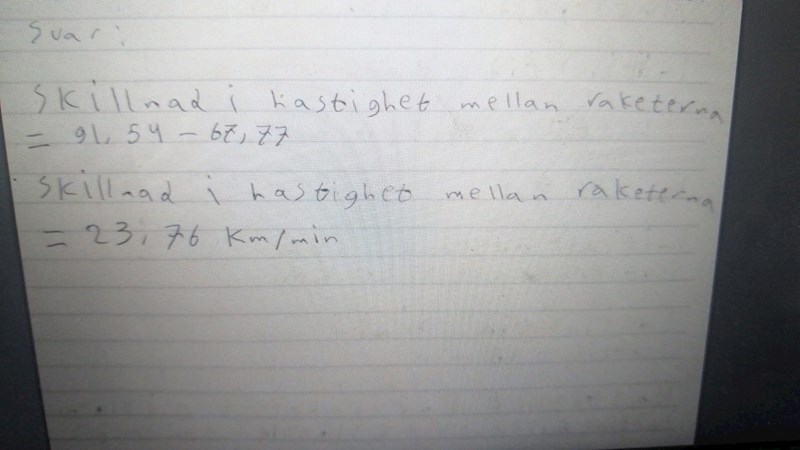 Svar:
Skillnad i hastighet mellan raketerna
= 91,54 - 67,77
Skillnad i hastighet mellan raketerna
= 23,76 Km/min